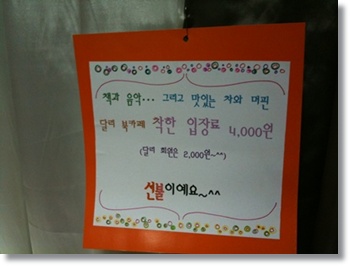 책과 음악... 그리고 맛있는 차와 머핀
달려 북카페 착한 입장료 4,000원
(달려 회원은 2,000원~^^)
선불이예요~^^